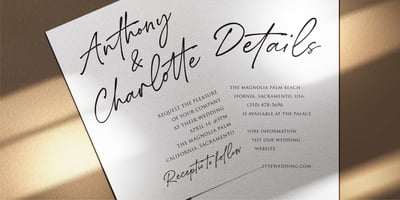 Anthony
&
Charlotte
Details
REQUEST THE PLEASURE
OF YOUR COMPANY
AT THEIR WEDDING
APRIL 14 @5PM
THE MAGNOLIA PALM
CALIFORNIA, SACRAMENTO
Reception to follow
THE MAGNOLIA PALM BEACH
IFORNIA, SACRAMENTO, USA
(310) 478-5696
IS AVAILABLE AT THE PALACE
ORE INFORMATION
ISIT OUR WEDDING
WEBSITE
TTEWEDDING.COM